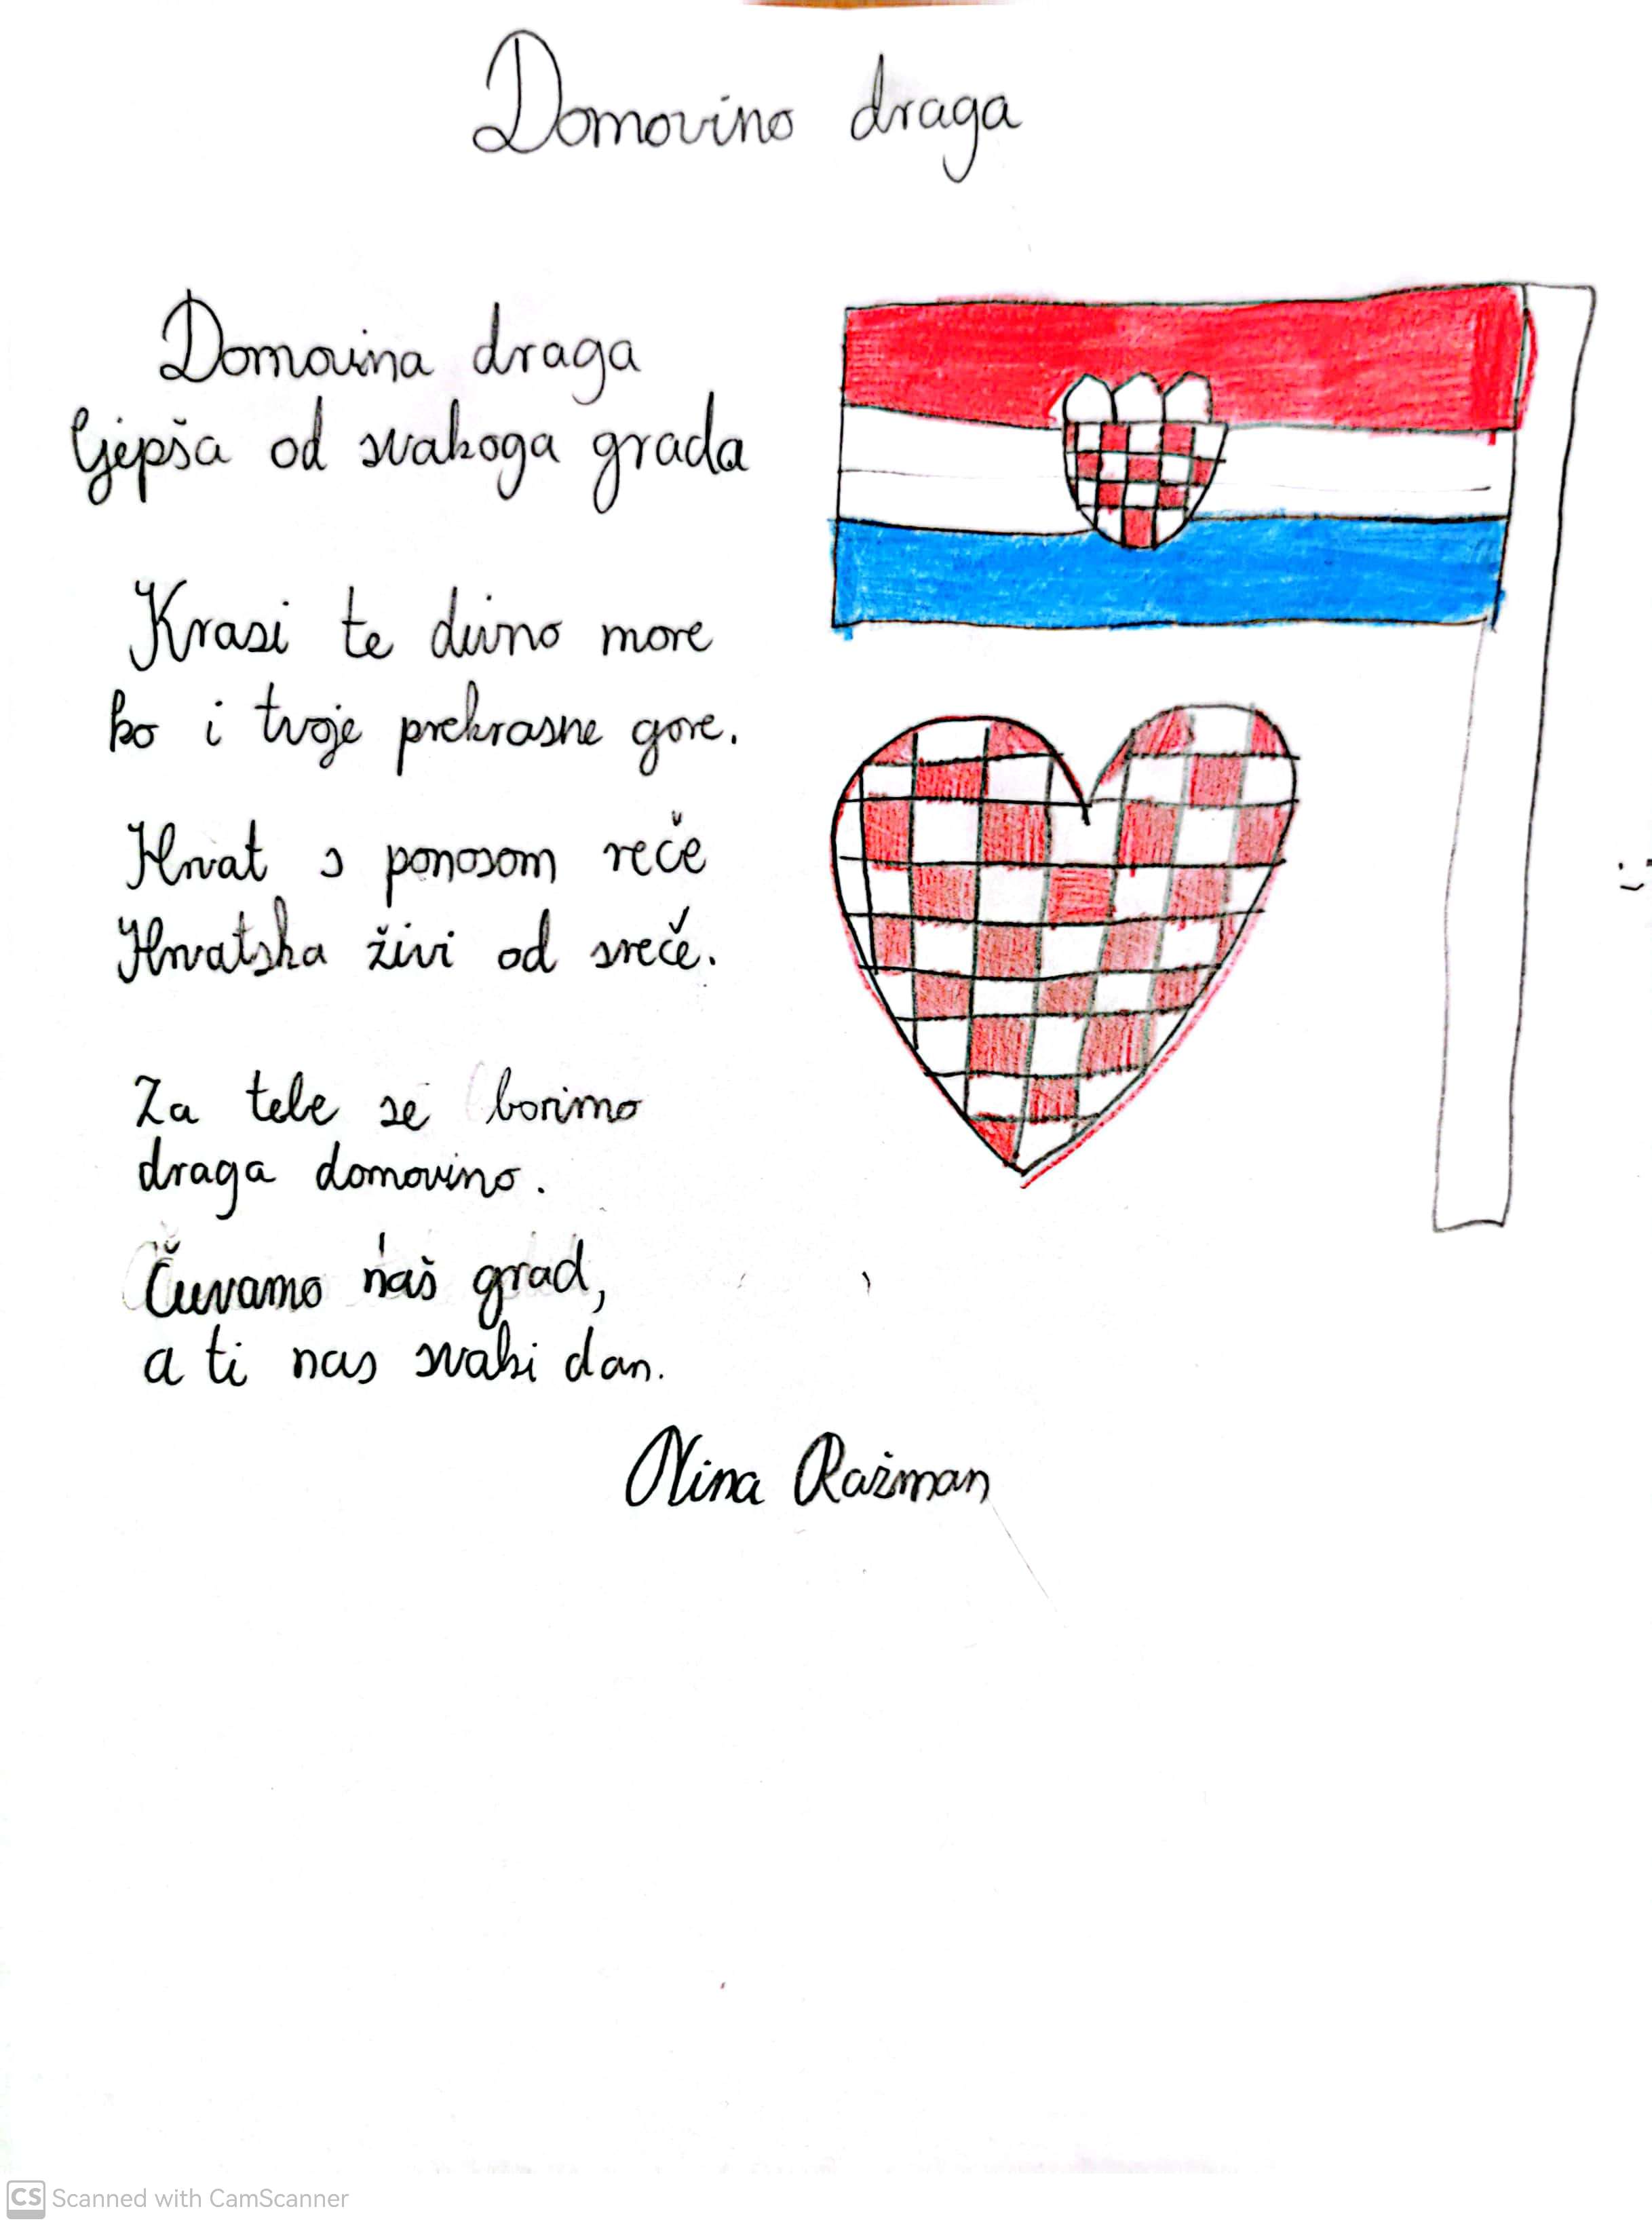 Domovino draga
Domovina draga
ljepša od svakoga grada
Krasi te divno more
ko i tvoje prekrasne gore.
Hrvat s ponosom reče
Hrvatska živi od sreče.
Za tebe se borimo
draga domovino.
Čuvamo naš grad,
a ti nas svaki dan.
Nina Ražman
CS Scanned with CamScanner